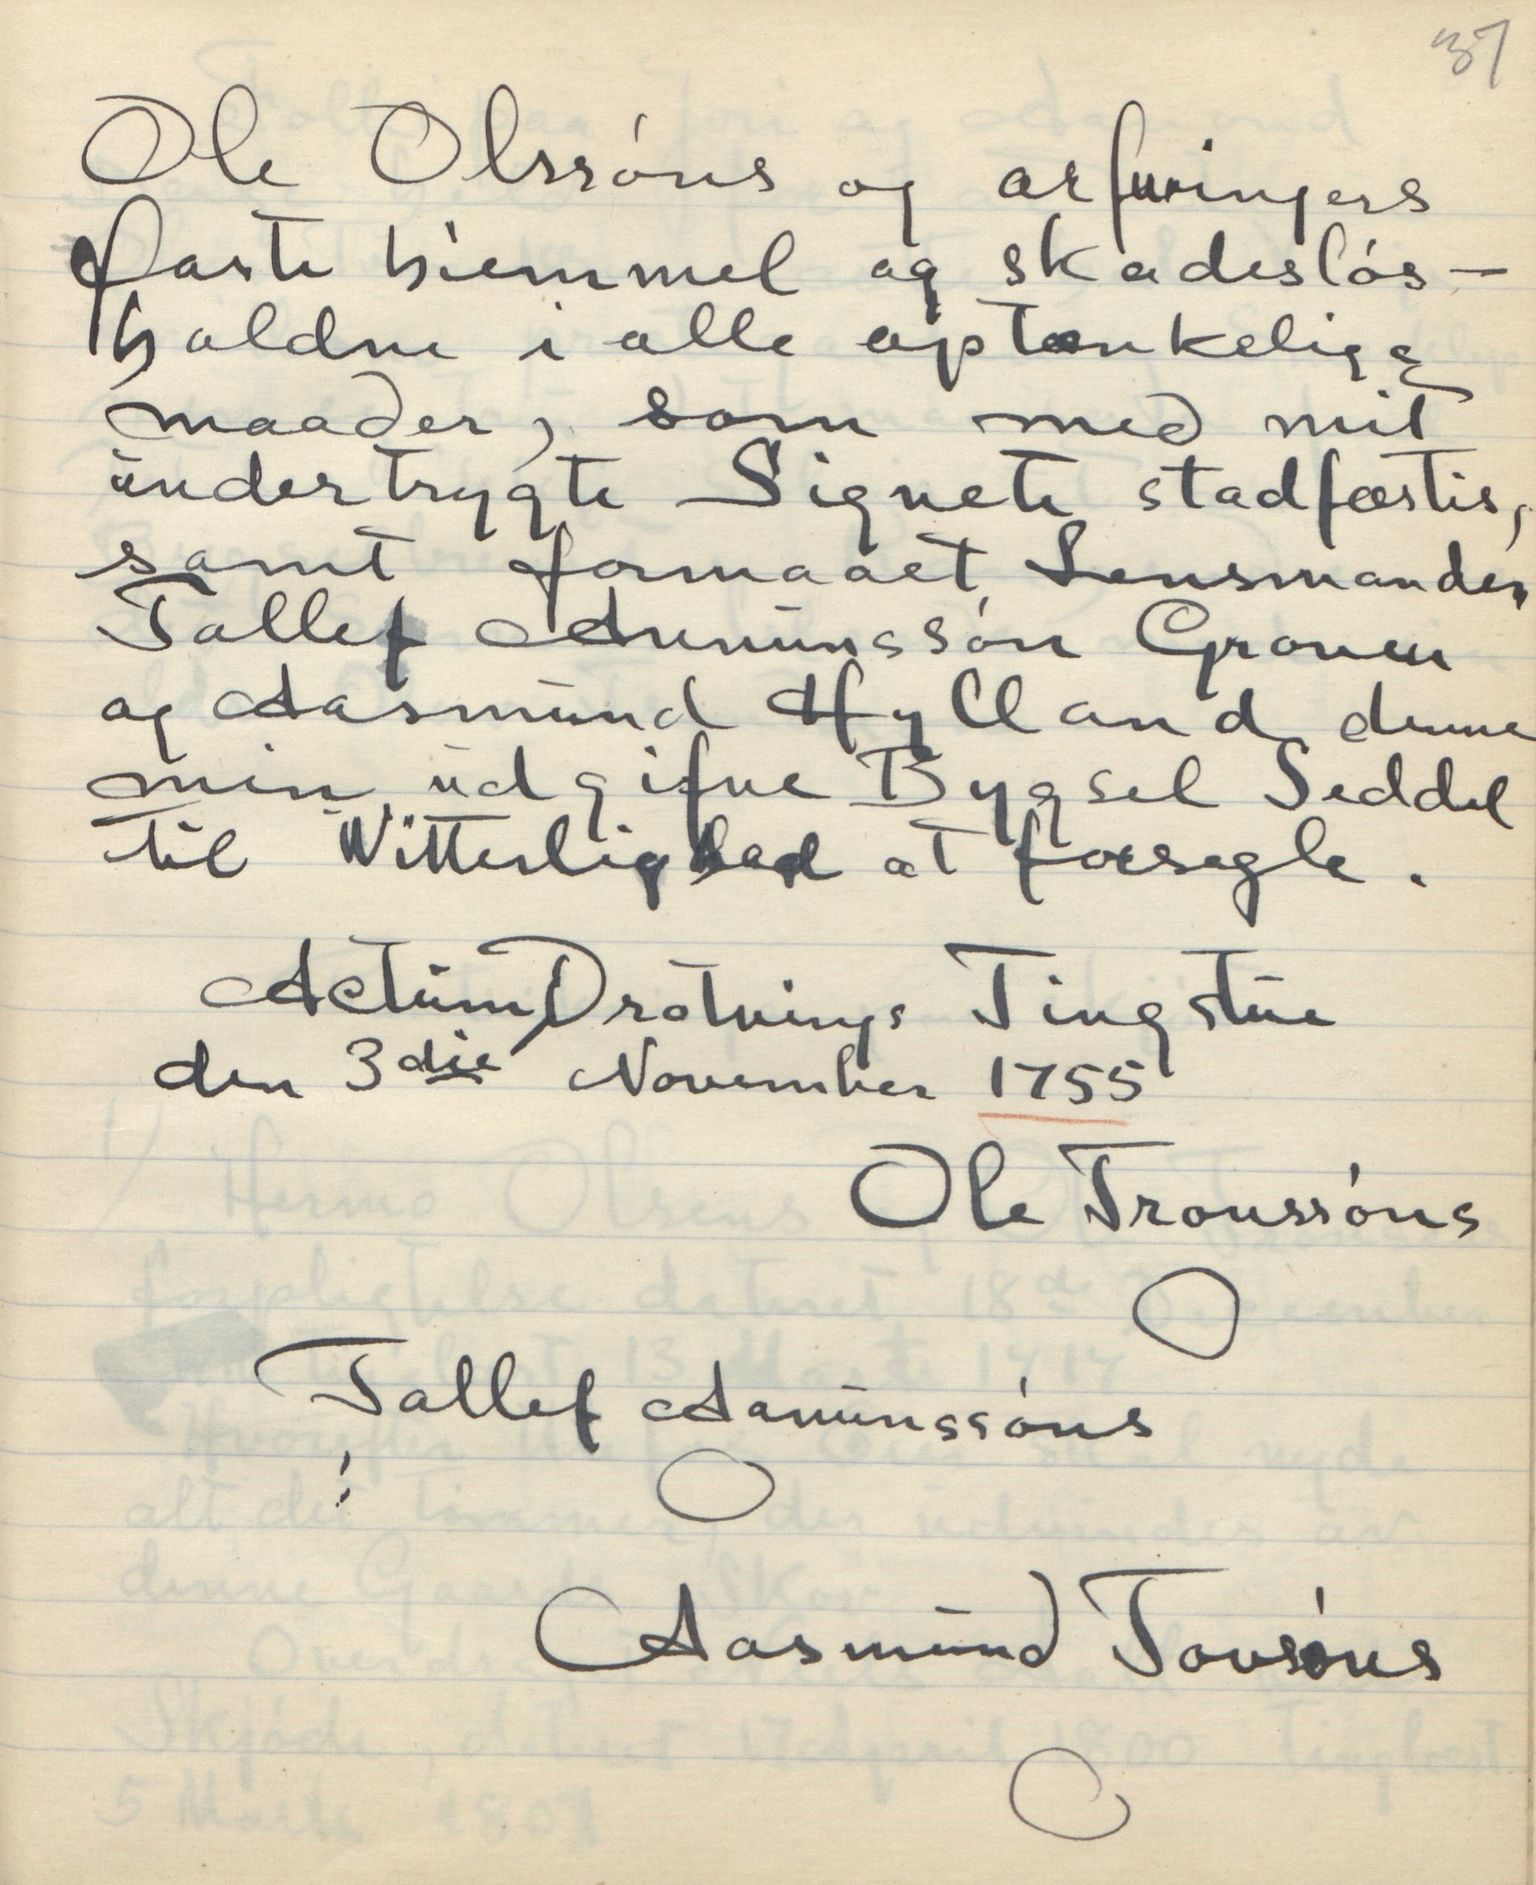 37
Ole Olssóns og arfwingers
faste hiemmel og skadeslós-
holdne i alle optænkelige
maader, som med mit
undertrygte Signete stadfæstis,
samt formaaet Lensmanden
Tallef Amunssón Groven
og Aasmund Hylland denne
min udgifne Bygsel Seddel
til Witterlighed at forsegle.
Actum Drotnings Tingstue
den 3die November 1755
Ole Tronssóns
Tallef Aamunssóns
!
Aasmund Tovsóns